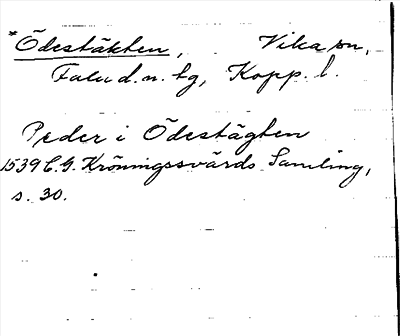 *Ödestäkten, Vika sn,
Falu d.n. tg, Kopp. l.
Peder i Ödestägten
1539 C.G. Kröningssvärds Samling,
s. 30.